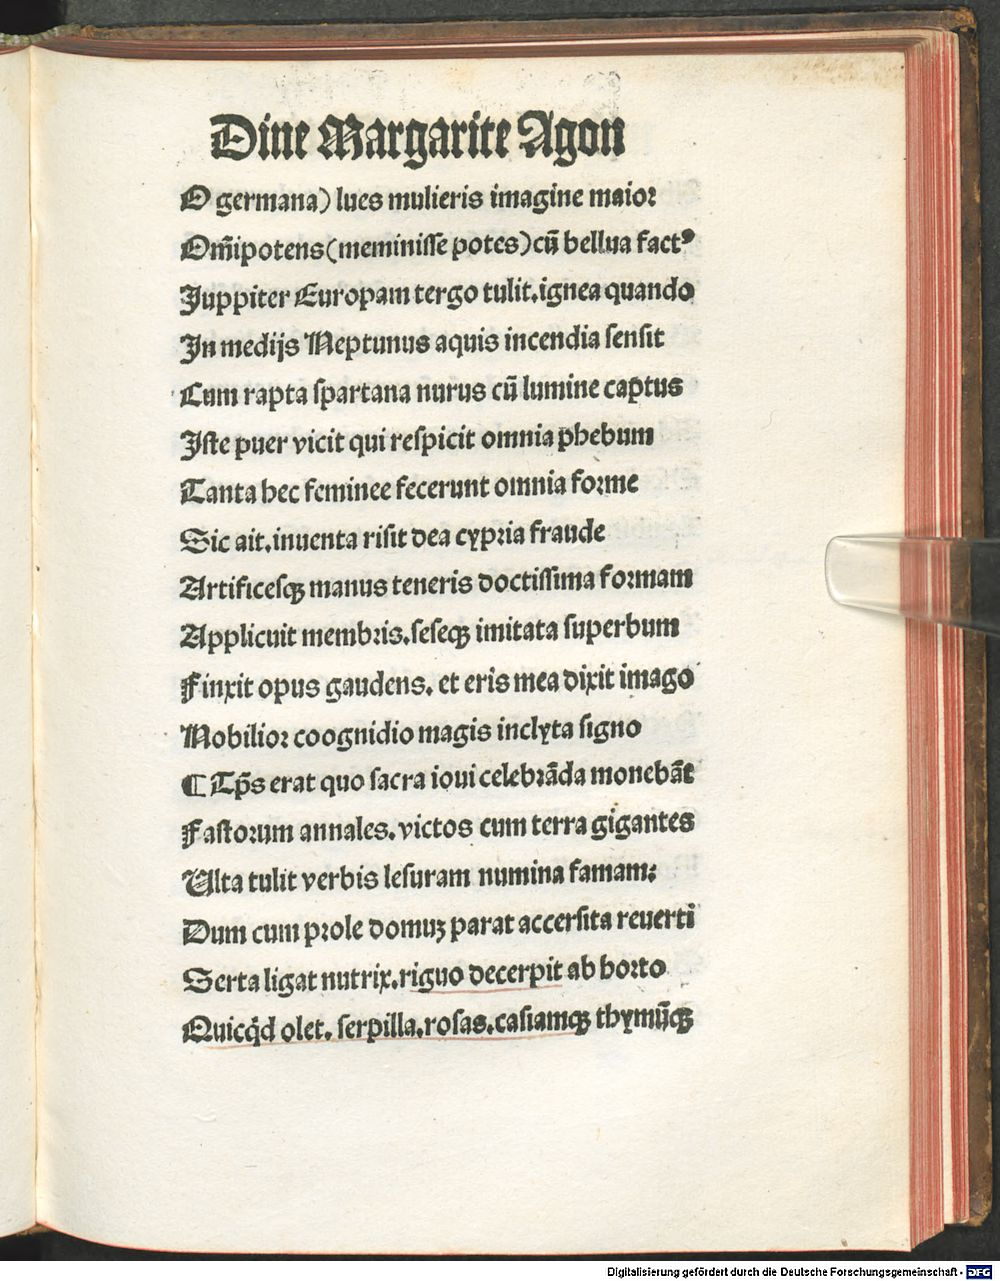 Diue Margarite Agon
O germana) lues mulieris imagine maior
Om̄ipotens(meminisse potes)cū bellua factꝰ
Juppiter Europam tergo tulit.ignea quando
In medijs Neptunus aquis incendia sensit
Cum rapta spartana nurus cū lumine captus
Iste puer vicit qui respicit omnia phebum
Tanta hec feminee fecerunt omnia forme
Sic ait.inuenta risit dea cypria fraude
Artificesqꝫ manus teneris doctissima formam
Applicuit membris.seseqꝫ imitata superbum
Finxit opus gaudens. et eris mea dixit imago
Nobilior coognidio magis inclyta signo
¶ Tp̄s erat quo sacra ioui celebrāda monebāt
Fastorum annales.victos cum terra gigantes
Ulta tulit verbis lesuram numina famam:
Dum cum prole domuꝫ parat accersita reuerti
Serta ligat nutrix.riguo decerpit ab horto
Quicq̇d olet. serpilla.rosas.casiamqꝫ thymūqꝫ
Digitalisierung gefördert durch die Deutsche Forschungsgemeinschaft - DFG